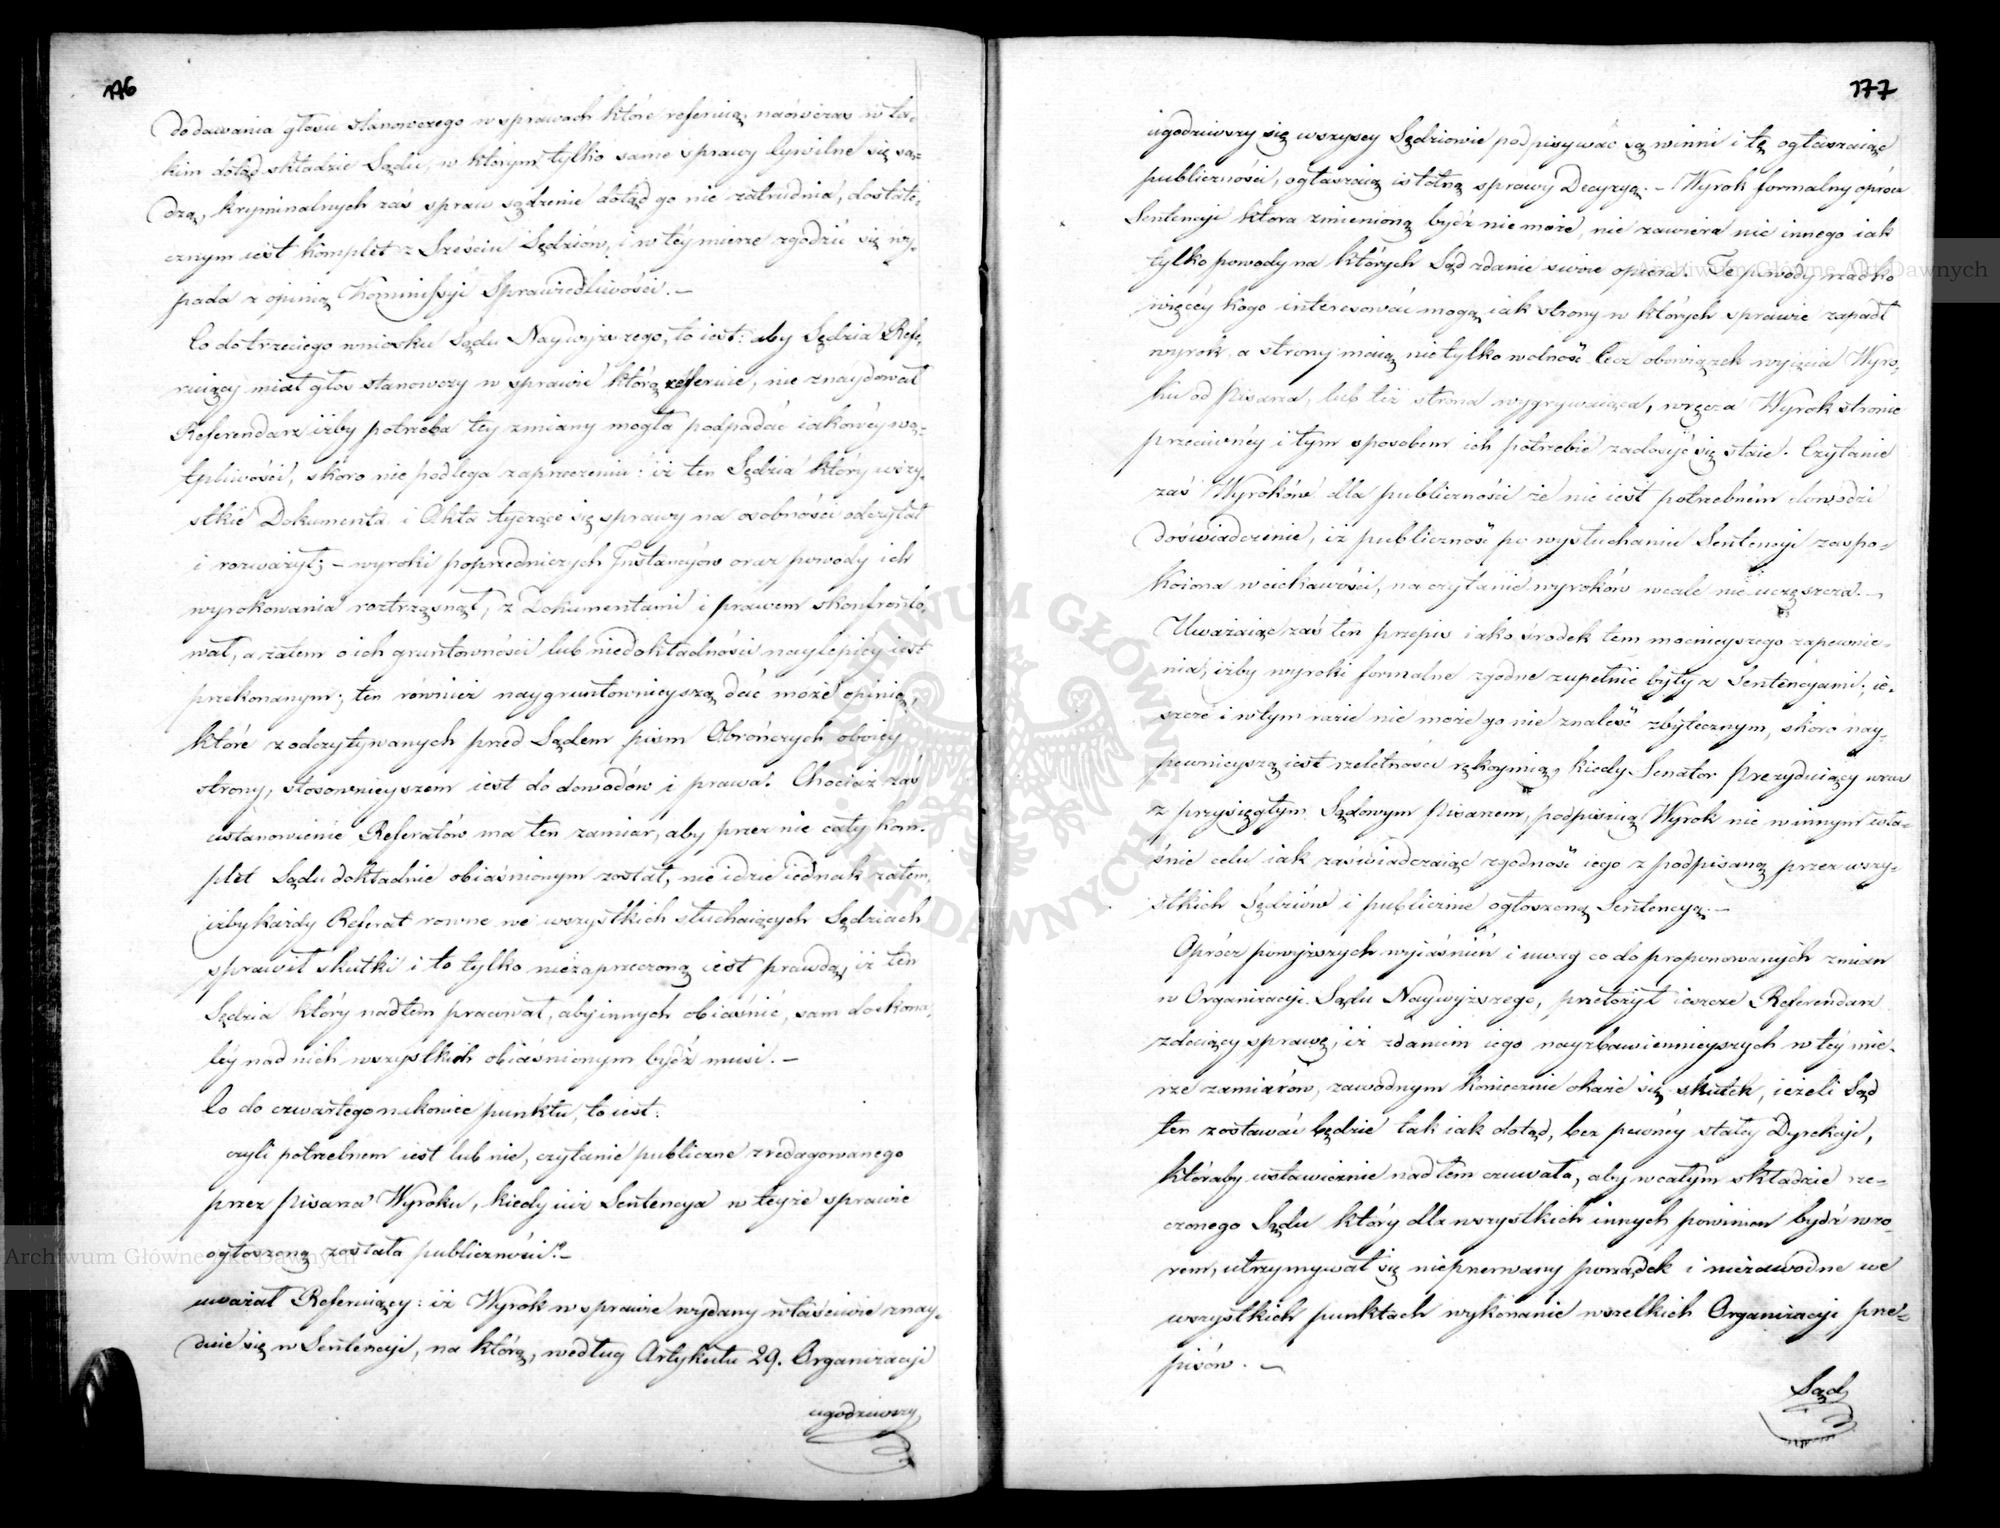 176
do dawania głosu stanowczego w sprawach które referuią, naówczas w ta-
kim dotąd składzie Sądu, w którym tylko same sprawy Cywilne się są-
dzą, kryminalnych zaś spraw sądzenie dotąd go nie zatrudnia, dostate,
cznym iest komplet z Sześciu Sędziów, i w téy mierze zgodzić się wy-
pada z opinią Kommissyi Sprawiedliwości. —
Co do trzeciego wniosku Sądu Naywyższego, to iest: aby Sędzia Refe,
ruiący miał głos stanowczy w sprawie którą referuie, nie znaydował
Referendarz iżby potrzeba tey zmiany mogła podpadać iakowéy wą-
tpliwości, skoro nie podlega zaprzeczeniu: iż ten Sędzia który wszy-
stkie Dokumenta i Akta tyczące się sprawy na osobności odczytał
i rozważył; — wyroki poprzedniczych Instancyów oraz powody ich
wyrokowania roztrząsnął, z Dokumentami i prawem skonfronto,
wał, a zatem o ich gruntowności lub niedokładności naylepiéy iest
przekonanym; ten również naygruntownieyszą dać może opinią,
które z odczytywanych przed Sądem pism Obrończych oboiéy
strony, stosownieyszem iest do dowodów i prawa. Chociaż zaś
ustanowienie Referatów ma ten zamiar, aby przez nie cały kom-
plet Sądu dokładnie obiaśnionym został, nie idzie iednak zatem,
iżby każdy Referat rowne we wszystkich słuchaiących Sędziach
sprawił skutki i to tylko niezaprzeczoną iest prawdą, iż ten
Sędzia który nad tem pracował, aby innych obiaśnić, sam doskona,
léy nad nich wszystkich obiaśnionym bydź musi. —
Co do czwartego nakoniec punktu, to iest:
czyli potrzebnem iest lub nie, czytanie publiczne zredagowanego
przez Pisarza Wyroku, kiedy iuż Sentencya w teyże sprawie
ogłoszoną została publiczności? —
uważał Referuiący: iż Wyrok w sprawie wydany właściwie znay-
duie się w Sentencyi, na którą, według Artykułu 29. Organizacyi
ugodziwszy
177
ugodziwszy się wszyscy Sędziowie podpisywać są winni i tę ogłaszaiąc
publiczności, ogłaszaią istotną sprawy Decyzyą. — Wyrok formalny oprócz
Sentencyi ktora zmienioną bydź nie może, nie zawiera nic innego iak
tylko powody na których Sąd zdanie swoie opiera. Te powody rzadko
więcéy kogo interesować mogą iak strony w których sprawie zapadł
wyrok, a strony maią nie tylko wolność lecz obowiązek wyięcia Wyro,
ku od Pisarza, lub też strona wygrywaiąca, wręcza Wyrok stronie
przeciwnéy i tym sposobem ich potrzebie zadosyć się staie. Czytanie
zaś Wyroków dla publiczności że nie iest potrzebném dowodzi
doświadczenie, iż publiczność po wysłuchaniu Sentencyi zaspo-
koiona w ciekawości, na czytanie wyroków wcale nie uczęszcza. —
Uważaiąc zaś ten przepis iako środek tem mocnieyszego zapewnie-
nia, iżby wyroki formalne zgodne zupełnie były z Sentencyami, ie-
szcze i w tym razie nie może go nie znaleść zbytecznym, skoro nay-
pewnieyszą iest rzetelności rękoymią, kiedy Senator Prezyduiący wraz
z przysięgłym Sądowym Pisarzem, podpisuią Wyrok nie w innym wła-
śnie celu iak zaświadczaiąc zgodność iego z podpisaną przez wszy-
stkich Sędziów i publicznie ogłoszoną Sentencyą. —
Oprócz powyższych wyiaśnień i uwag co do proponowanych zmian
w Organizacyi Sądu Naywyższego, przełożył ieszcze Referendarz
zdaiący sprawę, iż zdaniem iego nayzbawiennieyszych w téy mie-
rze zamiarów, zawodnym koniecznie okaże się skutek, ieżeli Sąd
ten zostawać będzie tak iak dotąd, bez pewnéy stałey Dyrekcyi,
któraby ustawicznie nad tém czuwała, aby w całym składzie rze-
czonego Sądu który dla wszystkich innych powinien bydź wzo-
rem, utrzymywał się nieprzerwany porządek i niezawodne we
wszystkich punktach wykonanie wszelkich Organizacyi prze-
pisów. —
Sąd
ARCHIWUM GŁÓWNE AKT DAWNYCH
Archiwum Główne Akt Dawnych
Archiwum Główne Akt Dawnych